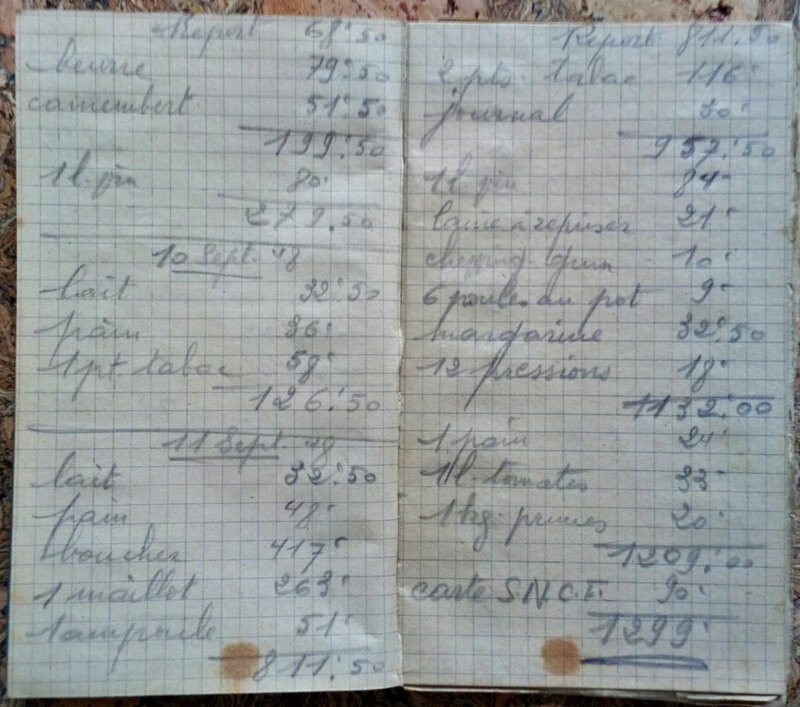 Report 68.50
beurre 79.50
camembert 51.50
199.50
1 l. vin 80.
279.50
10 Sept. 48
lait 32.50
pain 36.
1 pt. tabac 58.
126.50
11 Sept. 48
lait 32.50
pain 48.
boucher 417.
1 maillot 263.
1 ampoule 51.
811.50
Report 811.50
2 pts. tabac 116.
journal 30.
957.50
1 l. vin 84.
laine à repriser 21.
10.
6 au pot 9.
margarine 32.50
12 pressions 18.
1132.00
1 pain 24.
tomates 33.
1 kg. prunes 20.
1209.00
carte S.N.C.F. 90.
1299.